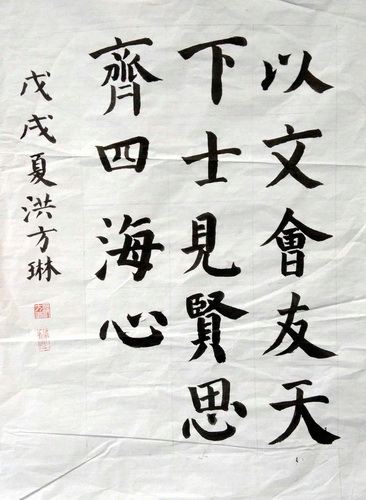 以文會友天
下士見賢思
齊四海心
戊戌夏洪方琳